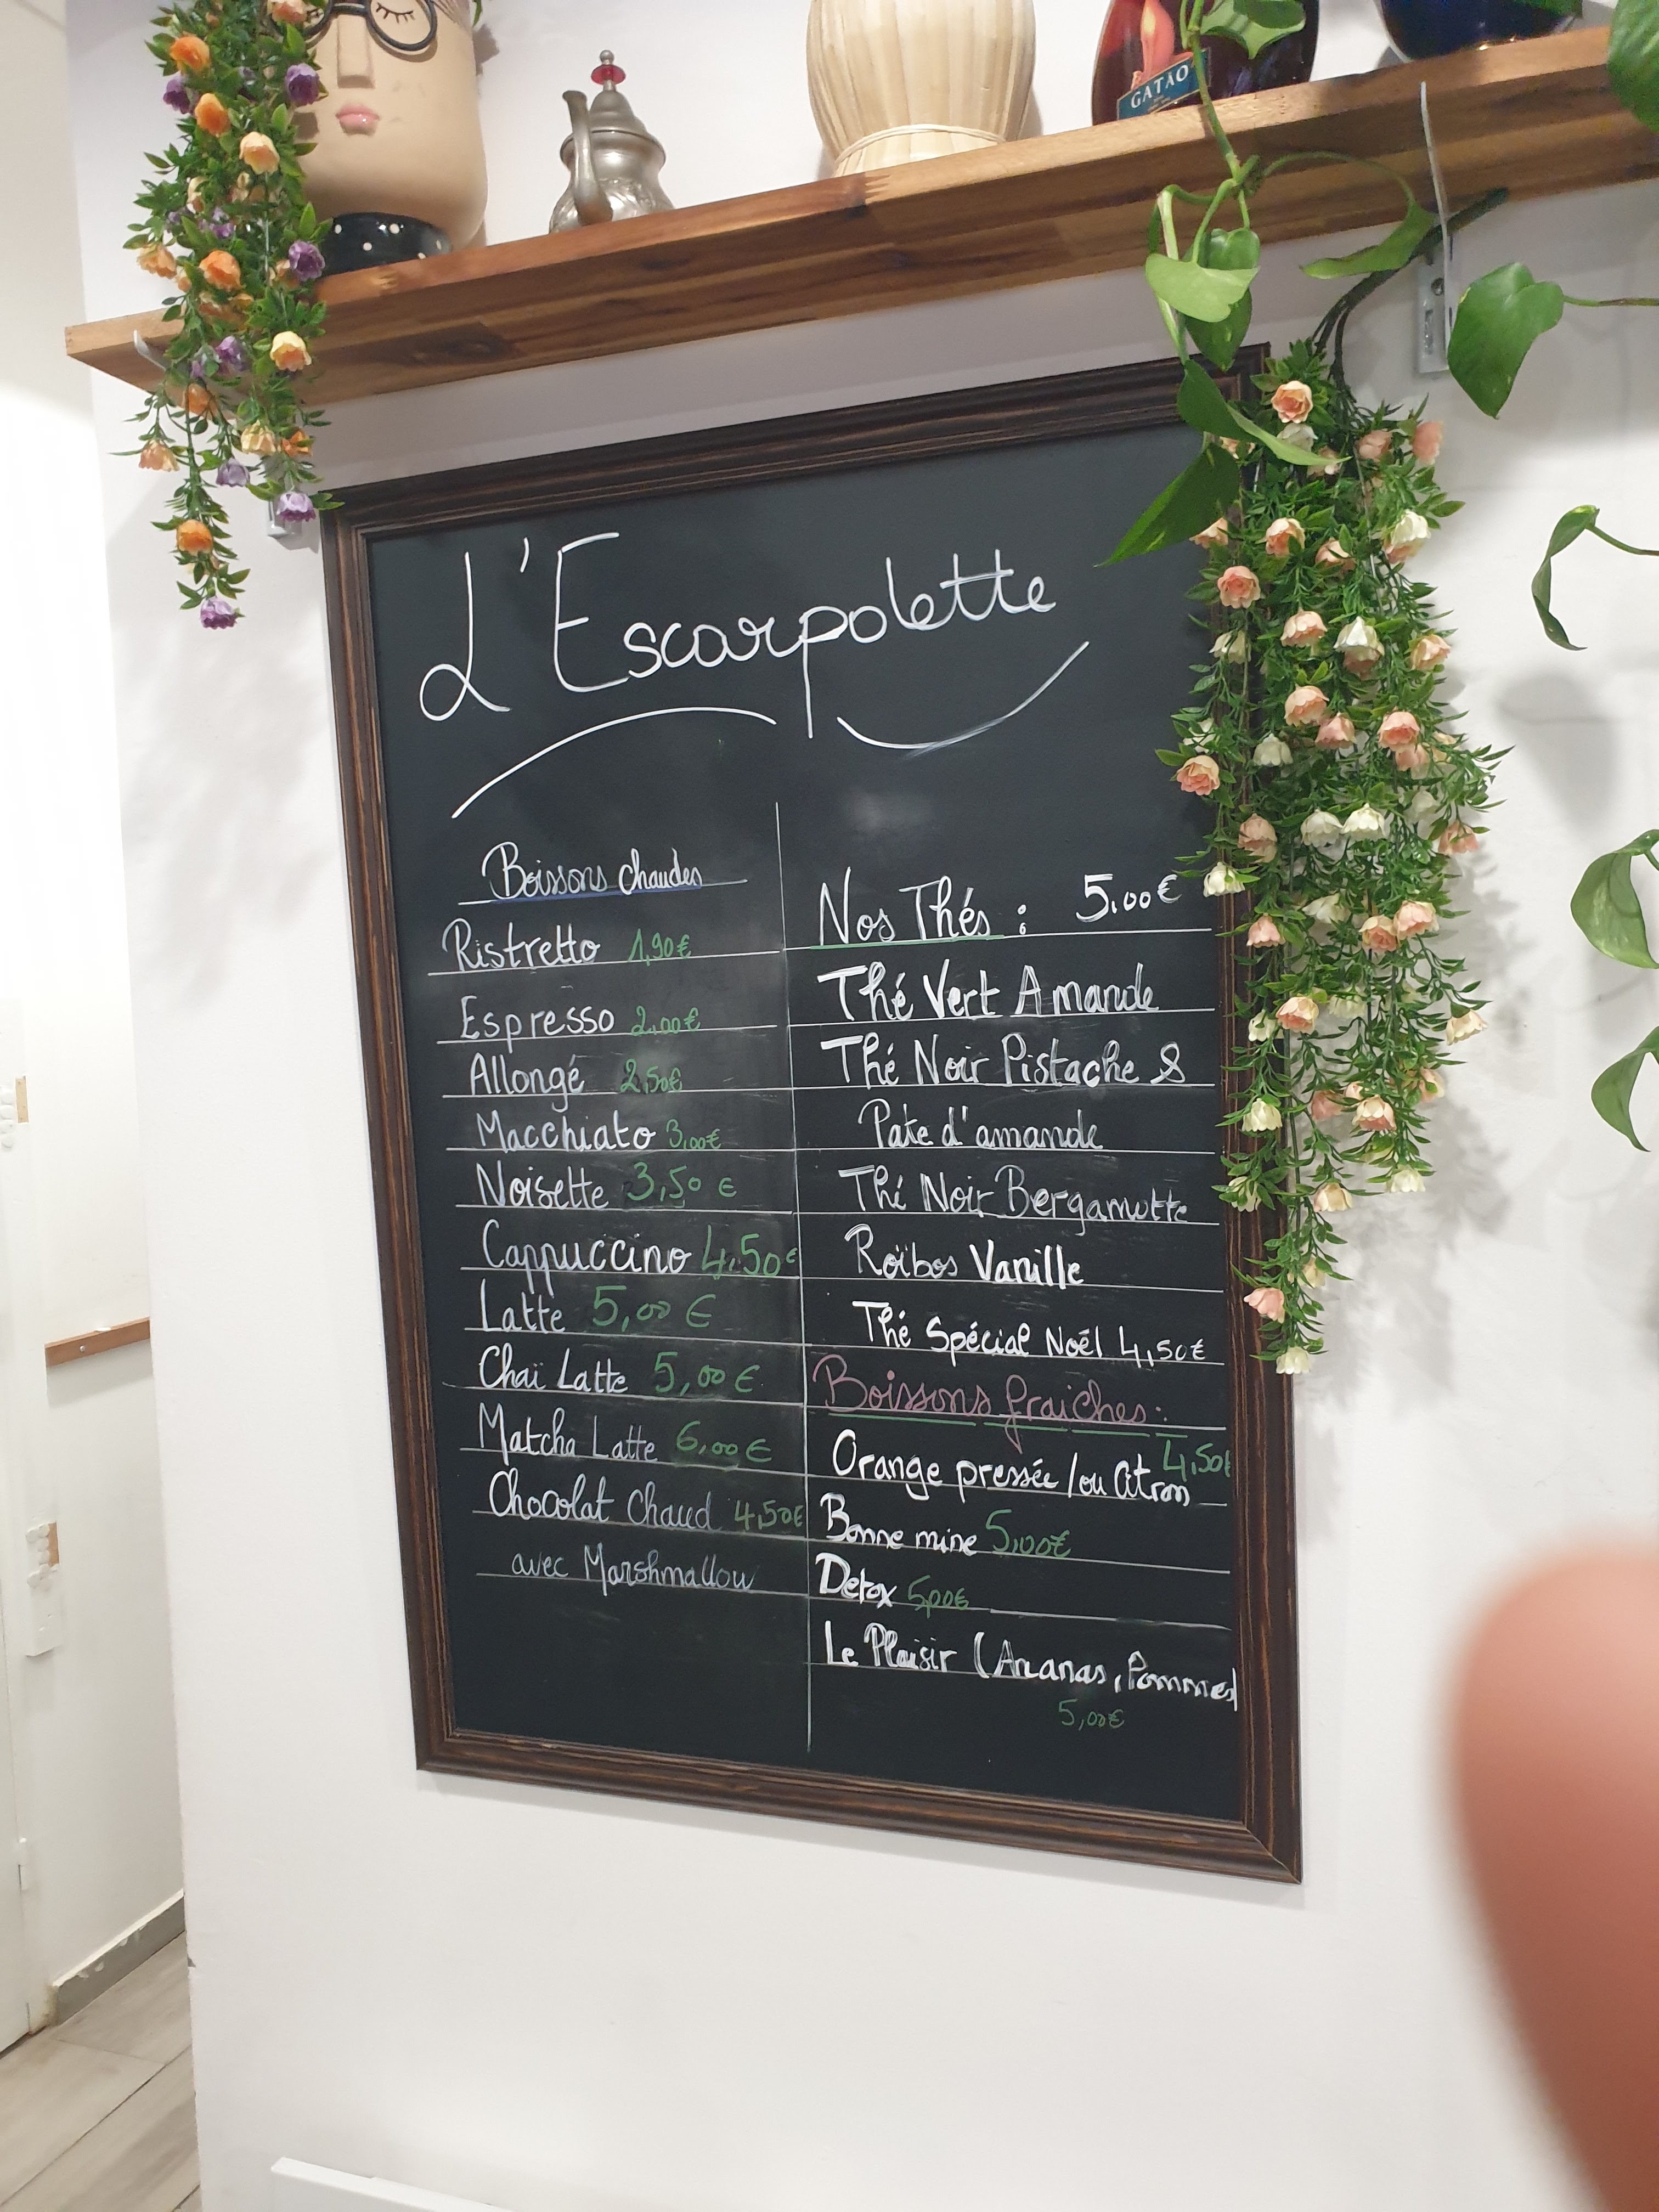 GATÃO
L'Escarpolette
Boissons chaudes
Ristretto 1,90€
Espresso 2,00€
Allongé 2,50€
Macchiato 3,00€
Noisette 3,50 €
Cappuccino 4,50€
Latte 5,00 €
Chaï Latte 5,00 €
Matcha Latte 6,00 €
Chocolat chaud 4,50€
avec Marshmallow
Nos Thés : 5,00€
Thé Vert Amande
Thé Noir Pistache &
Pate d'amande
Thé Noir Bergamotte
Roïbos Vanille
Thé Spécial Noël 4,50€
Boissons fraiches :
Orange pressée /ou Citron 4,50€
Bonne mine 5,00€
Detox 5,00€
Le Plaisir (Ananas, Pommes)
5,00€